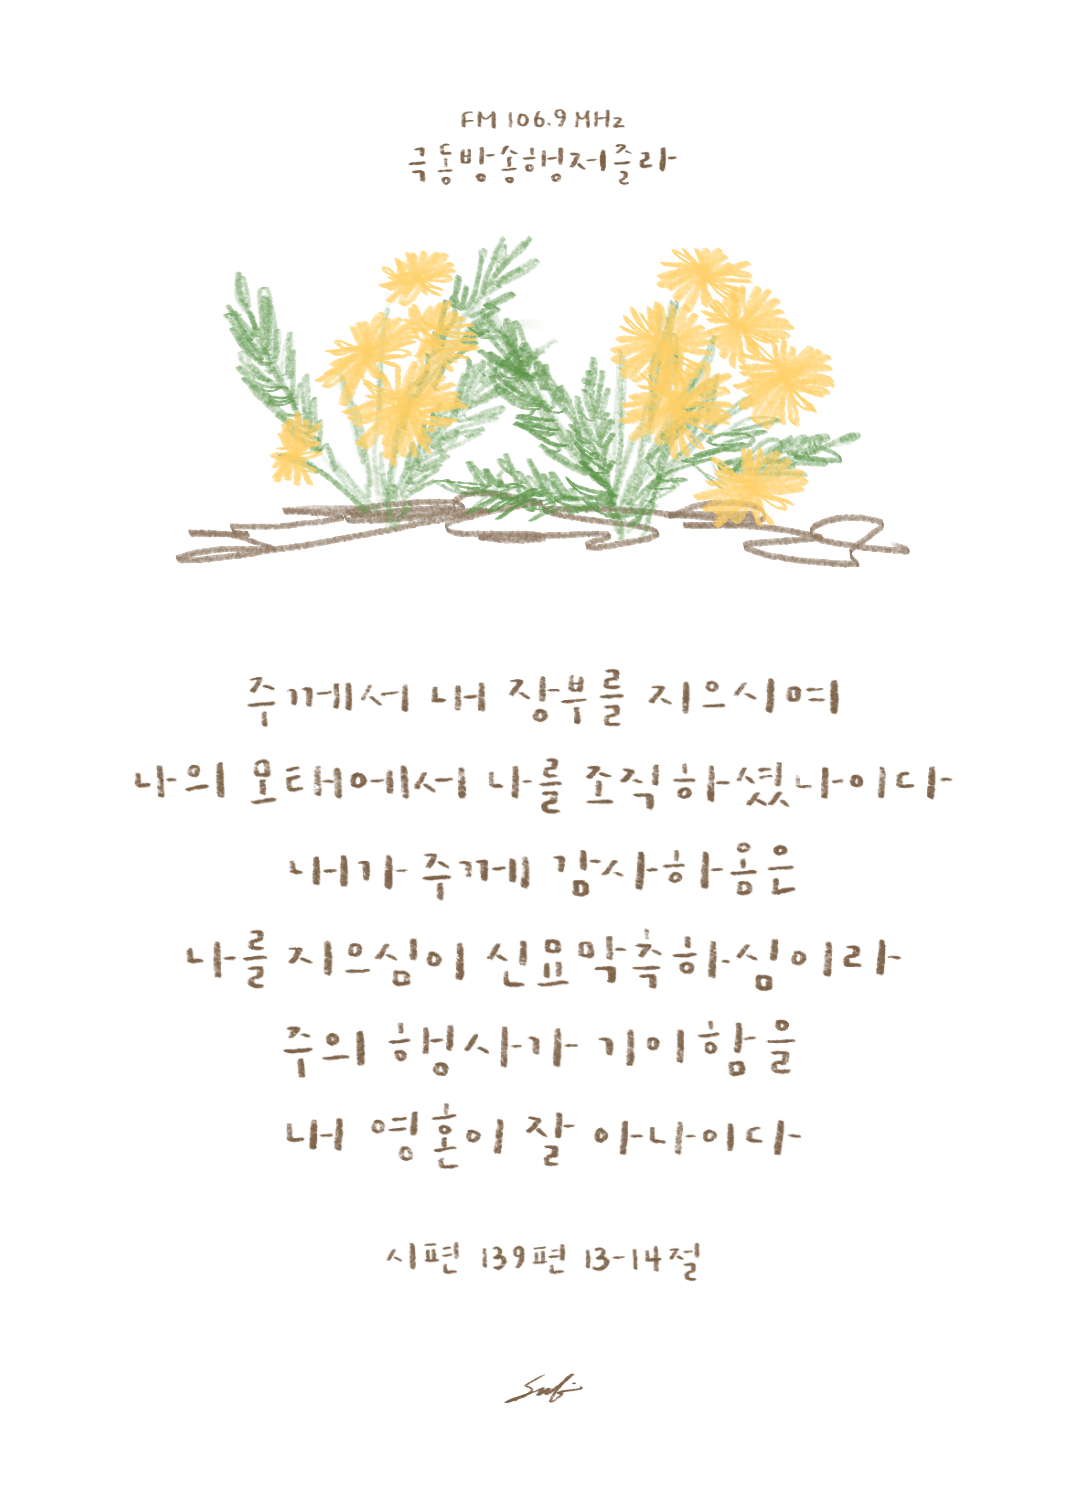 FM 106.9 MHz
극동방송행저줄라
주께서 내 장부를 지으시며
나의 모태에서 나를 조직하셨나이다
내가 주께 감사하옴은
나를 지으심이 신묘막측하심이라
주의 행사가 기이함을
내 영혼이 잘 아나이다
시편 139편 13-14절